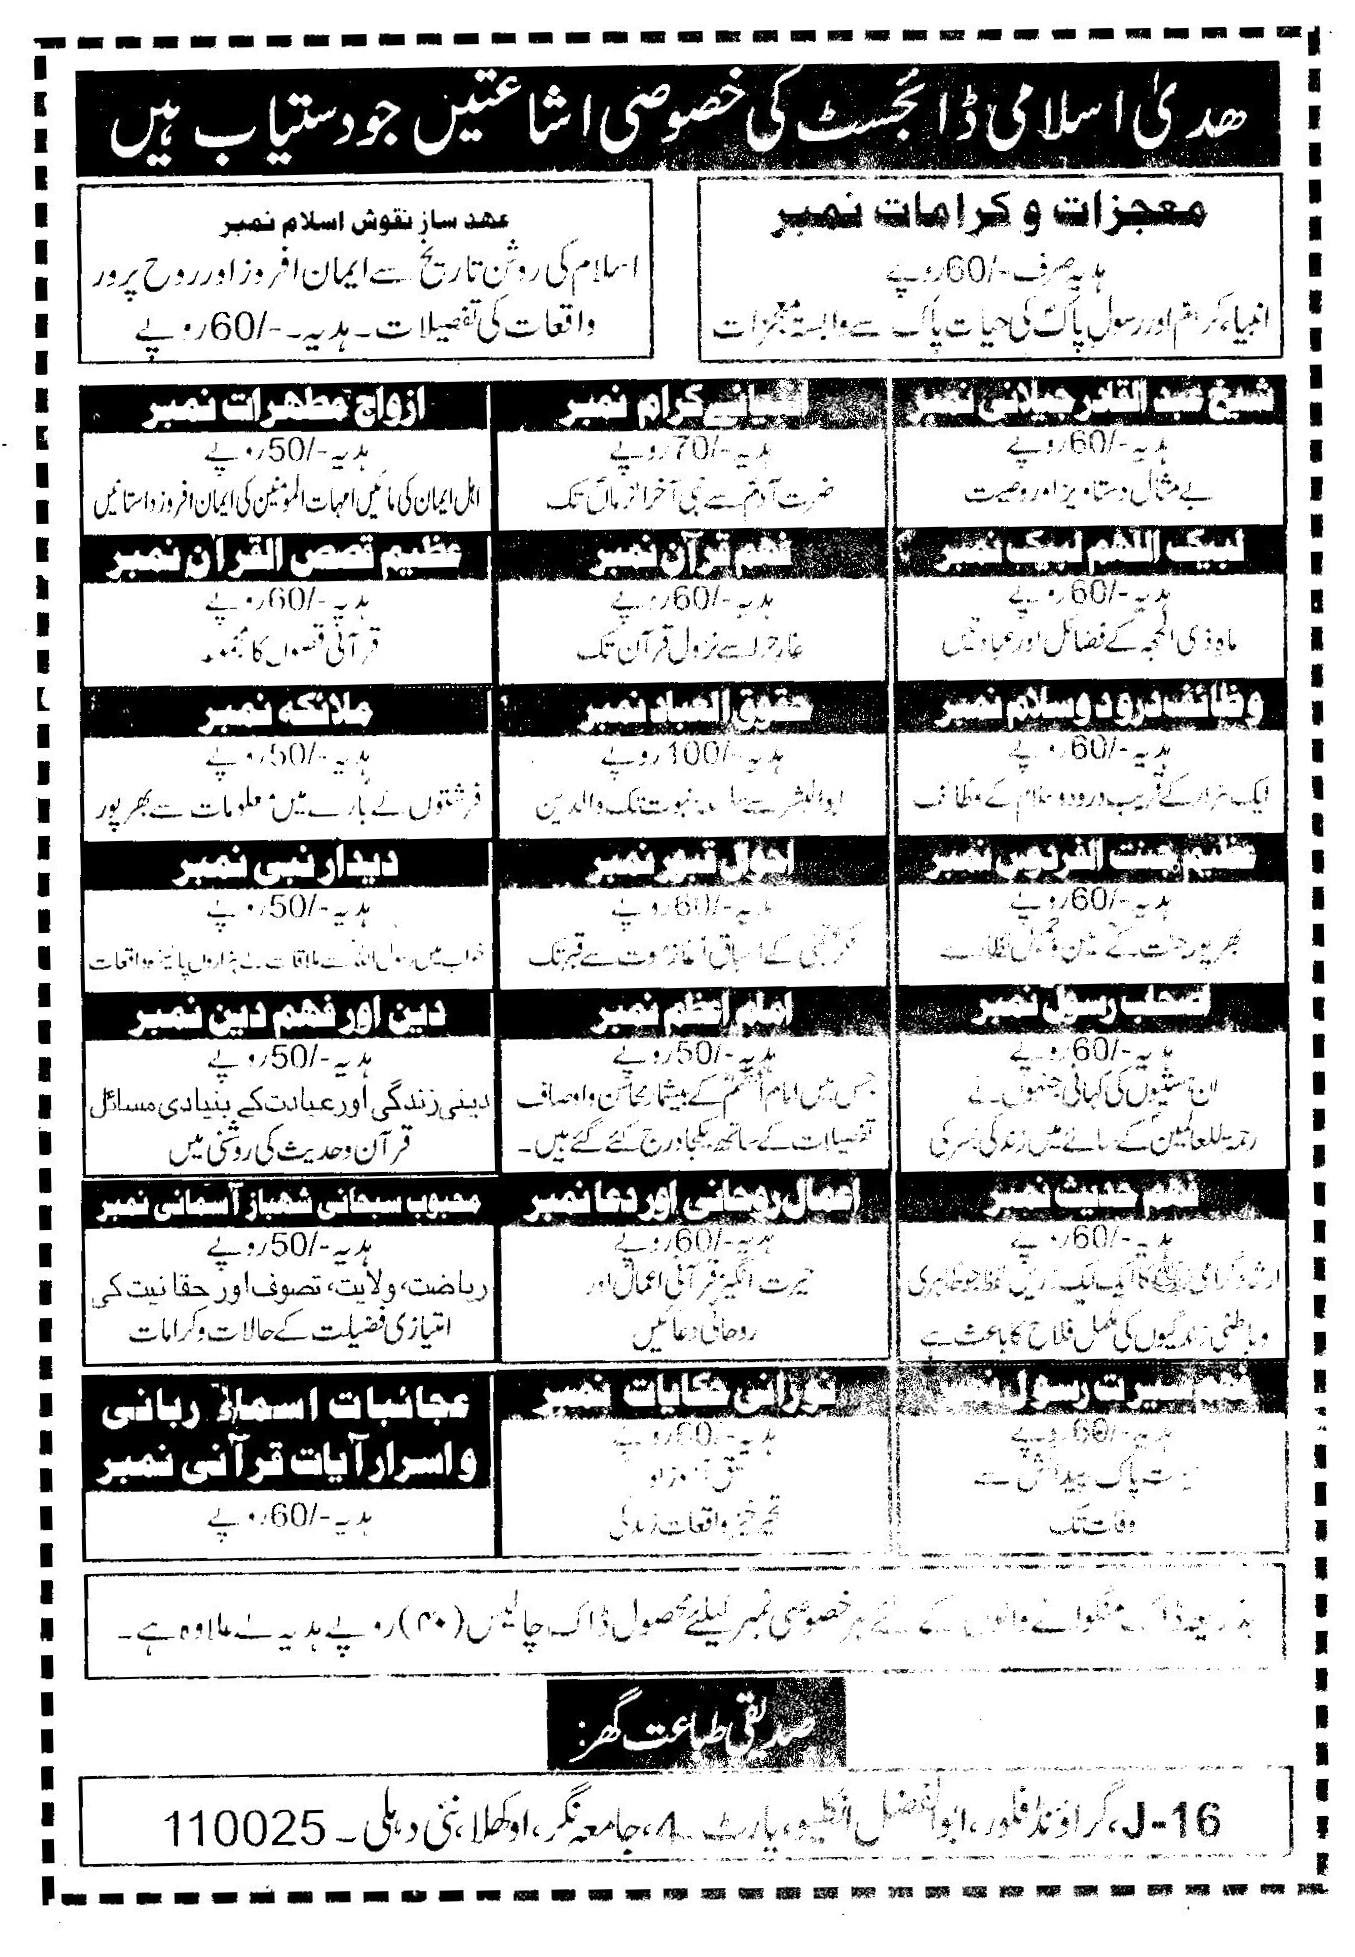 ھدیٰ اسلامی ڈائجسٹ کی خصوصی اشاعتیں جو دستیاب ہیں
معجزات و کرامات نمبر
ہدیہ صرف -/60 روپے
انبیاء کرام اور رسول پاک کی حیات پاک سے وابستہ معجزات
عہد ساز نقوش اسلام نمبر
اسلام کی روشن تاریخ سے ایمان افروز اور روح پرور
واقعات کی تفصیلات۔ ہدیہ۔ -/60 روپے
شیخ عبد القادر جیلانی نمبر
ہدیہ -/60 روپے
بے مثال دستاویز اور وصیت
انبیائے کرام نمبر
ہدیہ -/70 روپے
حضرت آدم سے نبی آخر الزماں تک
ازواج مطہرات نمبر
ہدیہ -/50 روپے
اہل ایمان کی مائیں امہات المومنین کی ایمان افروز داستانیں
لبیک اللھم لبیک نمبر
ہدیہ -/60 روپے
ماہ ذی الحجہ کے فضائل اور عبادتیں
فہم قرآن نمبر
ہدیہ -/60 روپے
غار حرا سے نزول قرآن تک
عظیم قصص القرآن نمبر
ہدیہ -/60 روپے
قرآنی قصوں کا مجموعہ
وظائف درود و سلام نمبر
ہدیہ -/60 روپے
ایک ہزار کے قریب درود و سلام کے وظائف
حقوق العباد نمبر
ہدیہ -/100 روپے
ابوالبشر سے نبوت تک والدین
ملائکہ نمبر
ہدیہ -/50 روپے
فرشتوں کے بارے میں معلومات سے بھرپور
عظیم جنت الفردوس نمبر
ہدیہ -/60 روپے
بھرپور جنت کے نظارے
احوال قبور نمبر
ہدیہ -/60 روپے
کے اسباق آغاز موت سے قبر تک
دیدار نبی نمبر
ہدیہ -/50 روپے
خواب میں رسول اللہ سے ملاقات کے ہزاروں پاکیزہ واقعات
اصحاب رسول نمبر
ہدیہ -/60 روپے
ان ہستیوں کی کہانی جنہوں نے
رحمۃ للعالمین کے سائے میں زندگی بسر کی
امام اعظم نمبر
ہدیہ -/50 روپے
جس میں امام اعظم کے بیشمار محاسن و اوصاف
تفصیلات کے ساتھ یکجا درج کئے گئے ہیں۔
دین اور فہم دین نمبر
ہدیہ -/50 روپے
دینی زندگی اور عبادت کے بنیادی مسائل
قرآن و حدیث کی روشنی میں
فہم حدیث نمبر
ہدیہ -/60 روپے
ارشاد گرامی ﷺ کا ایک ایک زریں لفظ جو ظاہری
و باطنی زندگیوں کی مکمل فلاح کا باعث ہے
اعمال روحانی اور دعا نمبر
ہدیہ -/60 روپے
حیرت انگیز قرآنی اعمال اور
روحانی دعائیں
محبوب سبحانی شہباز آسمانی نمبر
ہدیہ -/50 روپے
ریاضت، ولایت، تصوف اور حقانیت کی
امتیازی فضیلت کے حالات و کرامات
فہم سیرت رسول نمبر
ہدیہ -/60 روپے
سیرت پاک پیدائش سے
وفات تک
نورانی حکایات نمبر
ہدیہ -/60 روپے
سبق آموز اور
تحیر خیز واقعات زندگی
عجائبات اسمائے ربانی
و اسرار آیات قرآنی نمبر
ہدیہ -/60 روپے
بذریعہ ڈاک منگوانے والوں کے لئے ہر خصوصی نمبر کیلئے محصول ڈاک چالیس (۴۰) روپے ہدیہ کے علاوہ ہے۔
صدیقی طباعت گھر:
J-16، گراؤنڈ فلور، ابوالفضل انکلیو، پارٹ ۔4، جامعہ نگر، اوکھلا، نئی دہلی ۔ 110025